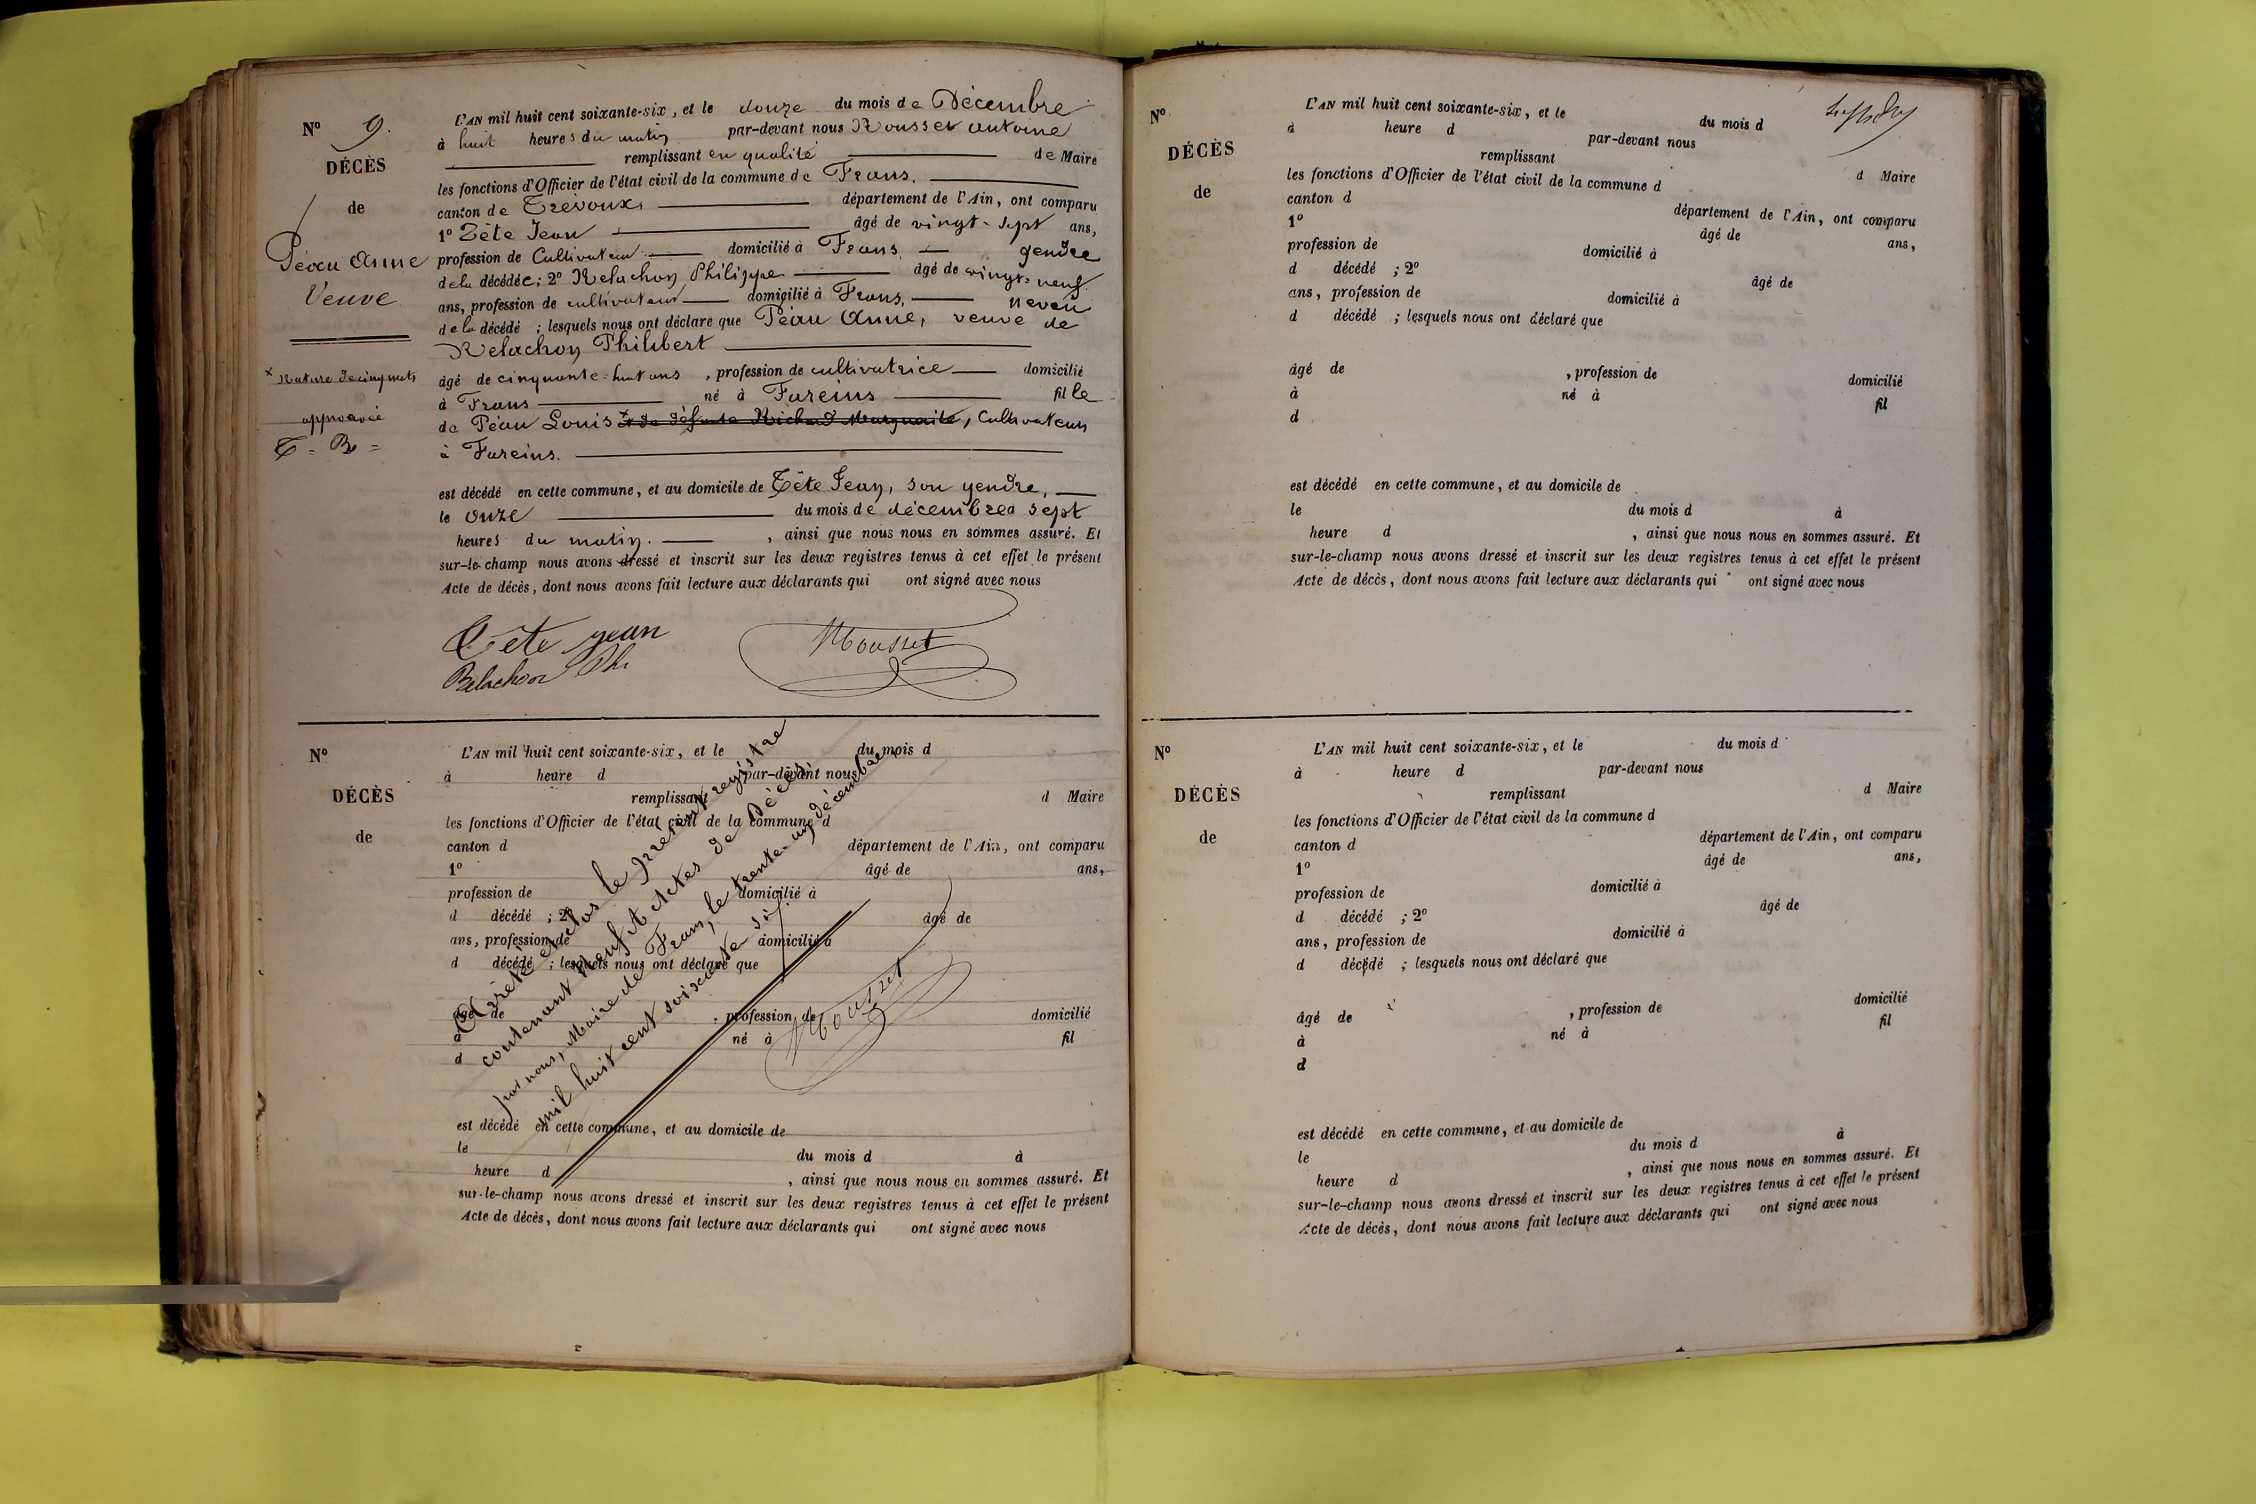 N° 9.
DÉCÈS
de
Péau Anne
Veuve
× Rature de cinq mots
approuvée
T = B =
L'AN mil huit cent soixante-six, et le douze du mois de Décembre
à huit heures du matin par-devant nous Rousset Antoine
remplissant en qualité de Maire
les fonctions d'Officier de l'état civil de la commune de Frans.
canton de Trévoux, département de l'Ain, ont comparu
1° Tête Jean âgé de vingt-sept ans,
profession de Cultivateur domicilié à Frans, gendre
de la décédée; 2° Relachon Philippe âgé de vingt-neuf
ans, profession de cultivateur domicilié à Frans, neveu
de la décédé ; lesquels nous ont déclaré que Péau Anne, veuve de
Relachon Philibert
âgé de cinquante-huit ans , profession de cultivatrice domicilié
à Frans né à Fareins fille
de Péau Louis × de défunte Richard Marguerite, Cultivateur
à Fareins.
est décédé en cette commune, et au domicile de Tête Jean, son gendre,
le onze du mois de décembre à sept
heures du matin. , ainsi que nous nous en sommes assuré. Et
sur-le-champ nous avons dressé et inscrit sur les deux registres tenus à cet effet le présent
Acte de décès, dont nous avons fait lecture aux déclarants qui ont signé avec nous
Tête jean
Relachon Ph.
Rousset
N°
DÉCÈS
de
L'AN mil huit cent soixante-six, et le du mois d
à heure d par-devant nous
remplissant d Maire
les fonctions d'Officier de l'état civil de la commune d
canton d département de l'Ain, ont comparu
1° âgé de ans,
profession de domicilié à
d décédé ; 2° âgé de
ans, profession de domicilié à
d décédé ; lesquels nous ont déclaré que
âgé de , profession de domicilié
à né à fil
d
est décédé en cette commune, et au domicile de
le du mois d à
heure d , ainsi que nous nous en sommes assuré. Et
sur-le-champ nous avons dressé et inscrit sur les deux registres tenus à cet effet le présent
Acte de décès, dont nous avons fait lecture aux déclarants qui ont signé avec nous
Arrêté et clos le présent registre
contenant neuf Actes de Décès,
par nous, Maire de Frans, le trente-un décembre
mil huit cent soixante six.
Rousset
N°
DÉCÈS
de
L'AN mil huit cent soixante-six, et le du mois d
à heure d par-devant nous
remplissant d Maire
les fonctions d'Officier de l'état civil de la commune d
canton d département de l'Ain, ont comparu
1° âgé de ans,
profession de domicilié à
d décédé ; 2° âgé de
ans, profession de domicilié à
d décédé ; lesquels nous ont déclaré que
âgé de , profession de domicilié
à né à fil
d
est décédé en cette commune, et au domicile de
le du mois d à
heure d , ainsi que nous nous en sommes assuré. Et
sur-le-champ nous avons dressé et inscrit sur les deux registres tenus à cet effet le présent
Acte de décès, dont nous avons fait lecture aux déclarants qui ont signé avec nous
N°
DÉCÈS
de
L'AN mil huit cent soixante-six, et le du mois d
à heure d par-devant nous
remplissant d Maire
les fonctions d'Officier de l'état civil de la commune d
canton d département de l'Ain, ont comparu
1° âgé de ans,
profession de domicilié à
d décédé ; 2° âgé de
ans, profession de domicilié à
d décédé ; lesquels nous ont déclaré que
âgé de , profession de domicilié
à né à fil
d
est décédé en cette commune, et au domicile de
le du mois d à
heure d , ainsi que nous nous en sommes assuré. Et
sur-le-champ nous avons dressé et inscrit sur les deux registres tenus à cet effet le présent
Acte de décès, dont nous avons fait lecture aux déclarants qui ont signé avec nous